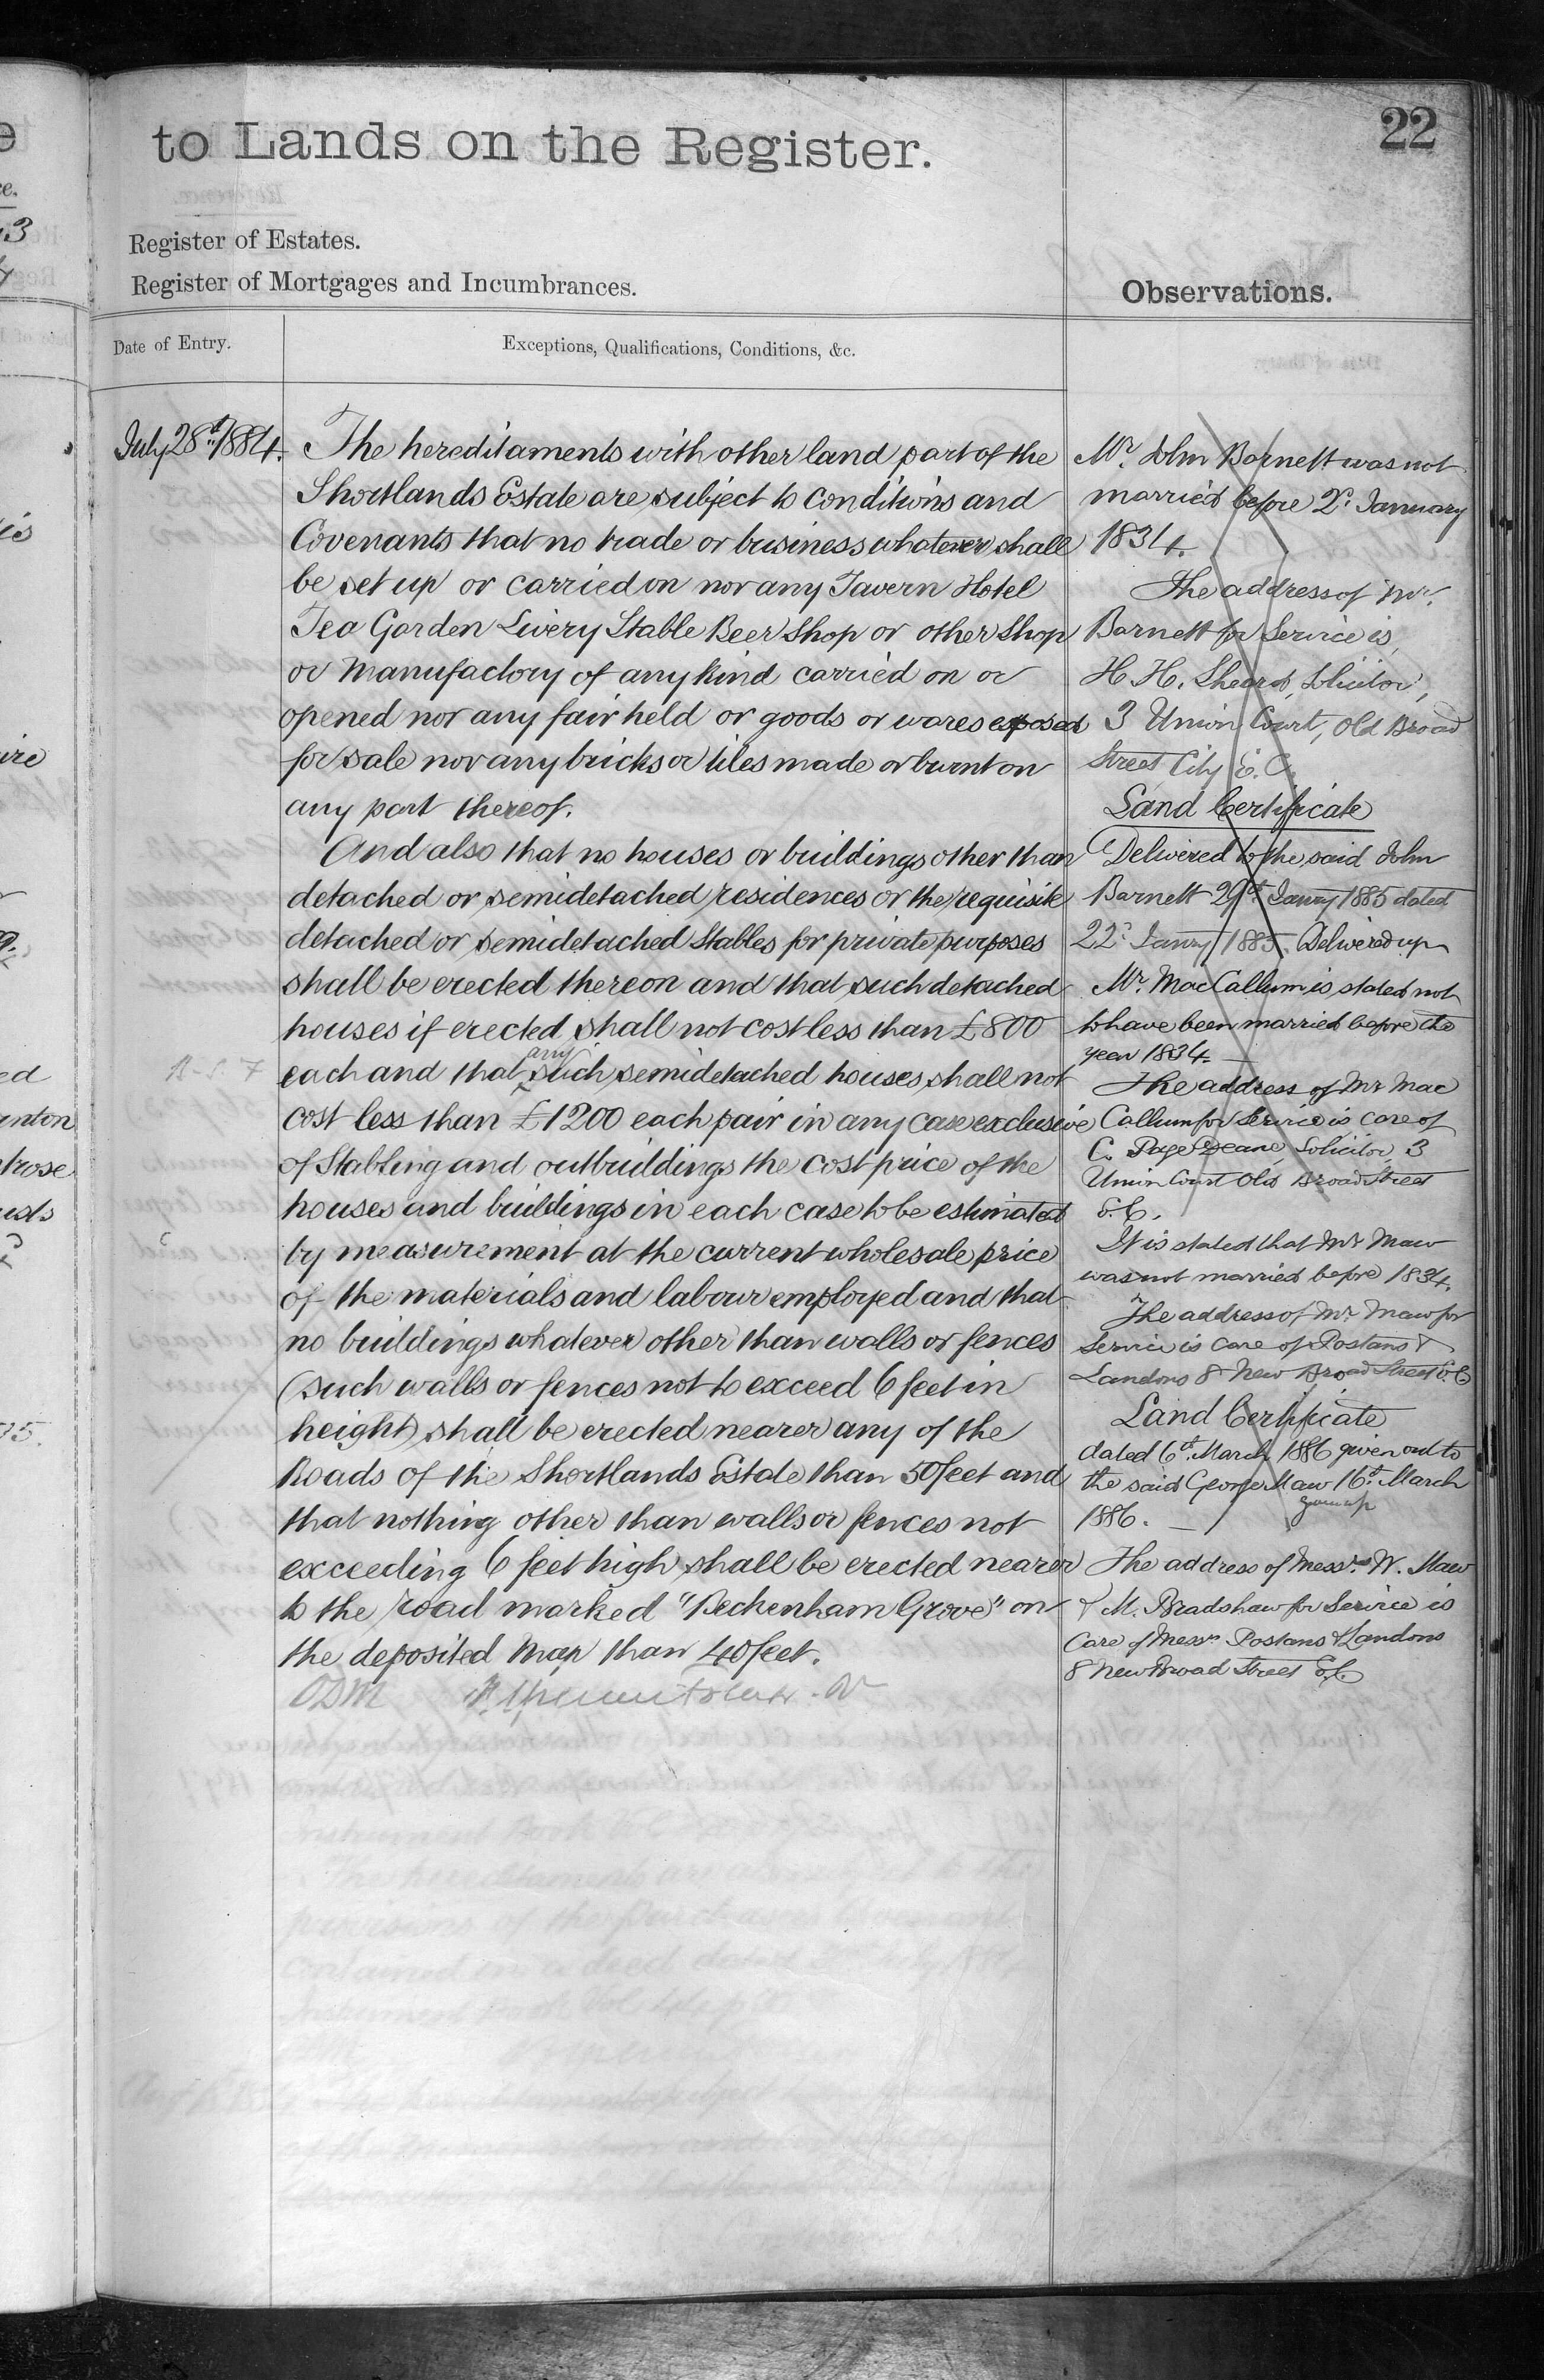 to Lands on the Register.
22
Register of Estates.
Register of Mortgages and Incumbrances.
Observations.
Date of Entry.
Exceptions, Qualifications, Conditions, &c.
July 28th 1884.
The hereditaments with other land part of the
Shortlands Estate are subject to conditions and
Covenants that no trade or business whatever shall
be set up or carried on nor any Tavern Hotel
Tea Garden Livery Stable Beer Shop or other Shop
or Manufactory of any kind carried on or
opened nor any fair held or goods or wares exposed
for sale nor any bricks or tiles made or burnt on
any part thereof.
And also that no houses or buildings other than
detached or semidetached residences or the requisite
detached or semidetached Stables for private purposes
shall be erected thereon and that such detached
houses if erected shall not cost less than £800
each and that any such semidetached houses shall not
cost less than £1200 each pair in any case exclusive
of Stabling and outbuildings the cost price of the
houses and buildings in each case to be estimated
by measurement at the current wholesale price
of the materials and labour employed and that
no buildings whatever other than walls or fences
(such walls or fences not to exceed 6 feet in
height) shall be erected nearer any of the
Roads of the Shortlands Estate than 50 feet and
that nothing other than walls or fences not
exceeding 6 feet high shall be erected nearer
to the road marked "Beckenham Grove" on
the deposited Map than 40 feet.
Mr. John Barnett was not
married before 2d. January
1834.
The address of Mr.
Barnett for Service is
H. H. Sheard, Solicitor,
3 Union Court, Old Broad
Street City E. C.
Land Certificate
Delivered to the said John
Barnett 29th Janry 1885 dated
22d Janry 1885. Delivered up
Mr. MacCallum is stated not
to have been married before the
year 1834. —
The address of Mr Mac
Callum for Service is care of
C. Page Deane, Solicitor, 3
Union Court Old Broad Street
E.C.
It is stated that Mr Maw
was not married before 1834.
The address of Mr Maw for
Service is care of Postans &
Landons 8 New Broad Street E.C
Land Certificate
dated 6th March 1886 given out to
the said George Maw 16th March
1886. —
The address of Messrs. W. Maw
& M. Bradshaw for Service is
Care of Messrs Postans & Landons
8 New Broad Street E.C